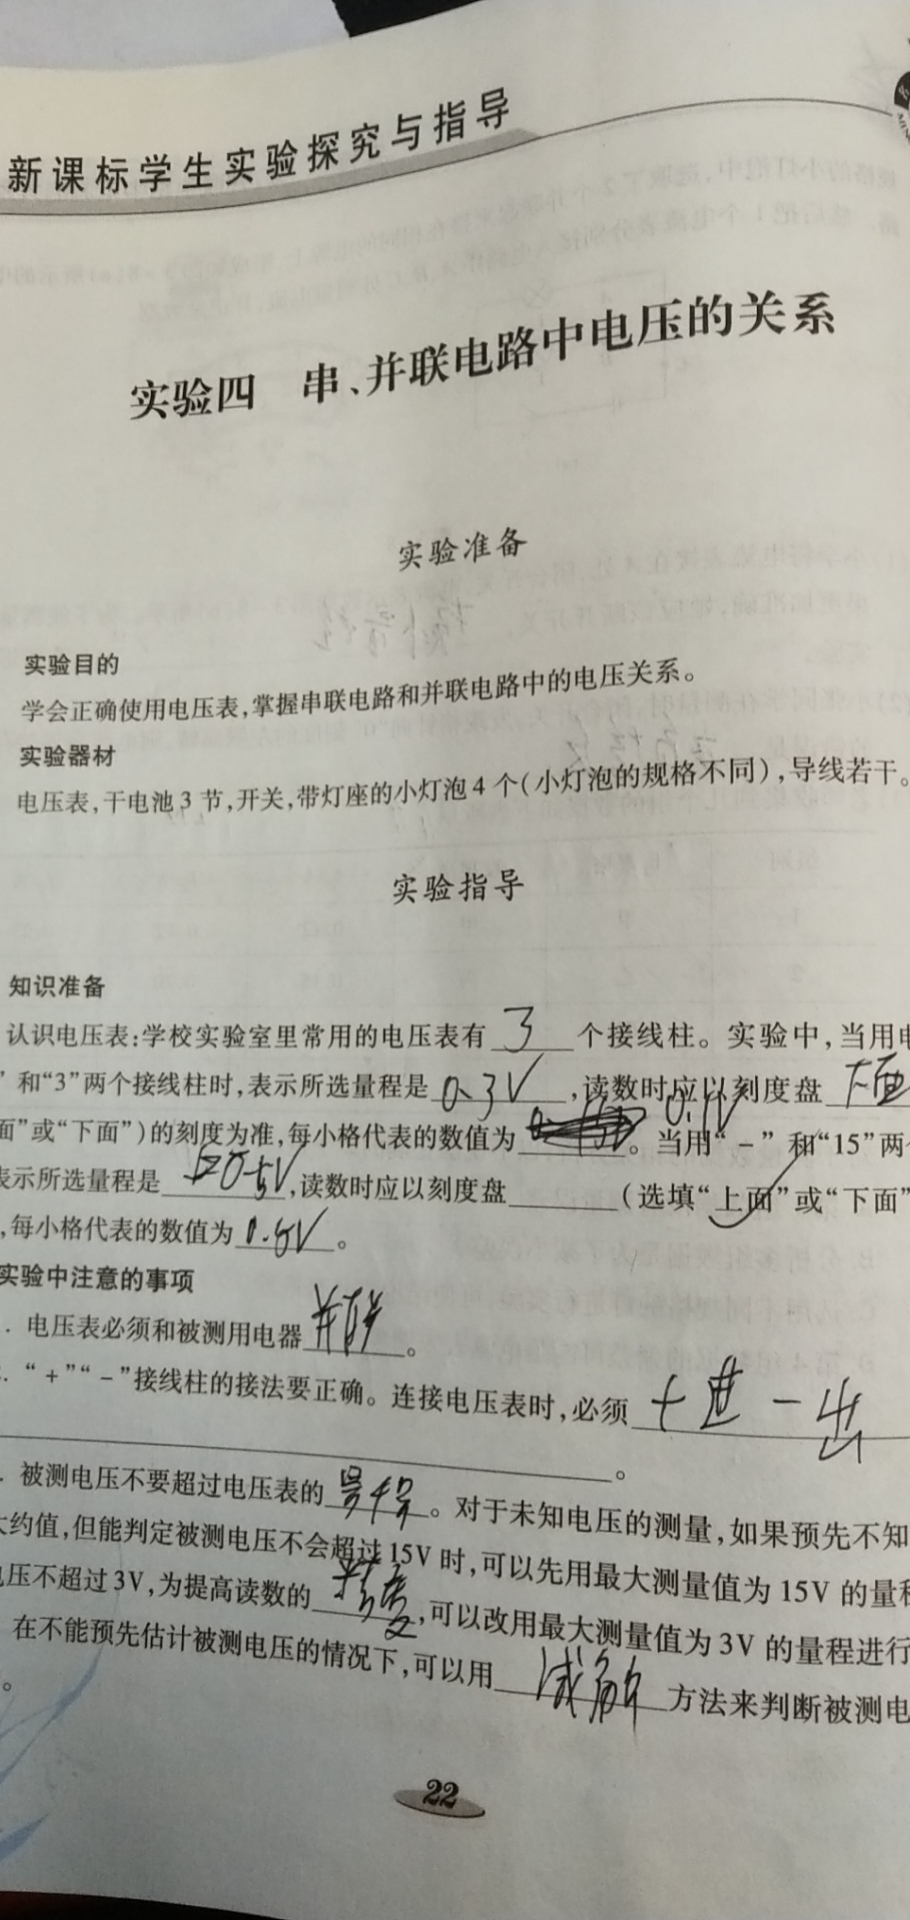 新课标学生实验探究与指导
实验四 串、并联电路中电压的关系
实验准备
实验目的
学会正确使用电压表,掌握串联电路和并联电路中的电压关系。
实验器材
电压表,干电池3节,开关,带灯座的小灯泡4个(小灯泡的规格不同),导线若干。
实验指导
知识准备
认识电压表:学校实验室里常用的电压表有 3 个接线柱。实验中,当用
”和“3”两个接线柱时,表示所选量程是 0.3V ,读数时应以刻度盘 下面
面”或“下面”)的刻度为准,每小格代表的数值为 0.1V 。当用“-”和“15”两
表示所选量程是 ,读数时应以刻度盘 (选填“上面”或“下面”
,每小格代表的数值为 0.5V 。
实验中注意的事项
.电压表必须和被测用电器 并联 。
.“+”“-”接线柱的接法要正确。连接电压表时,必须 +进-出
。
.被测电压不要超过电压表的 量程 。对于未知电压的测量,如果预先不知
大约值,但能判定被测电压不会超过15V时,可以先用最大测量值为15V的量程
电压不超过3V,为提高读数的 精度 ,可以改用最大测量值为3V的量程进行
在不能预先估计被测电压的情况下,可以用 试触 方法来判断被测电
。
22